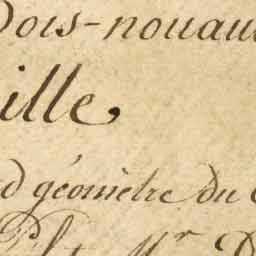 Dois-nouau
ille,
d géomètre du